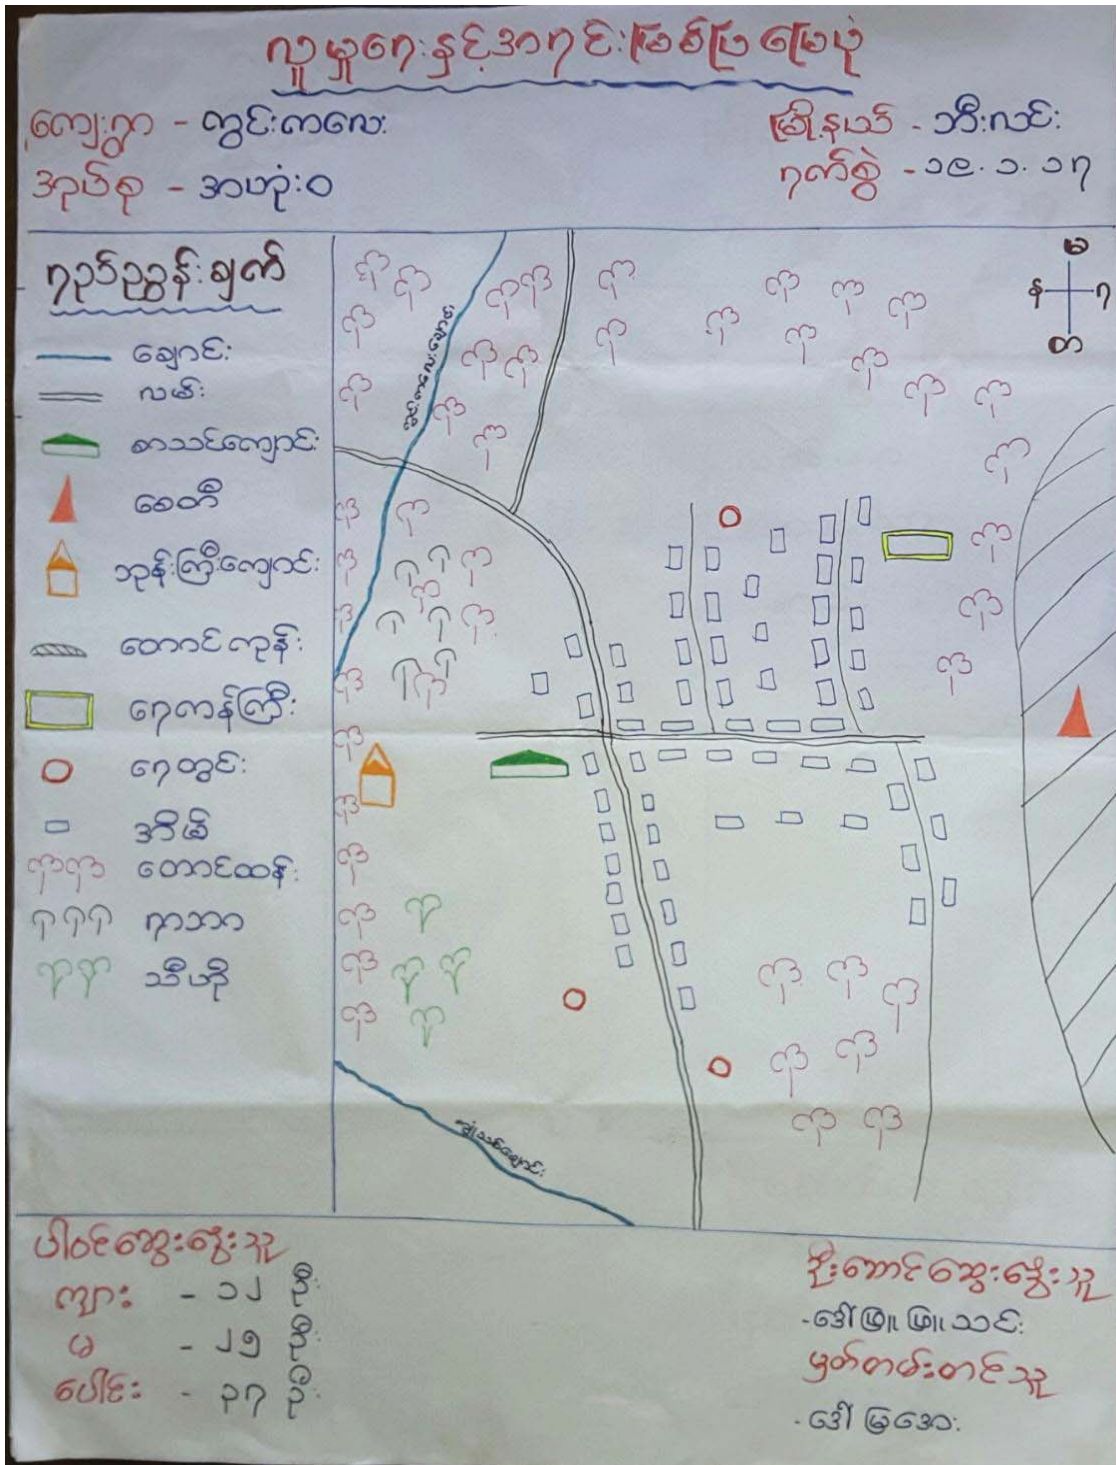 လူမှုရေးနှင့်အရင်းမြစ်ပြမြေပုံ
ကျေးရွာ - ကွင်းကလေး
မြို့နယ် - ဘီးလင်း
အုပ်စု - အဟုံးဝ
ရက်စွဲ - ၁၉.၁.၁၇
ရည်ညွှန်းချက်
ချောင်း
လမ်း
စာသင်ကျောင်း
စေတီ
ဘုန်းကြီးကျောင်း
တောင်ကုန်း
ရေကန်ကြီး
ရေတွင်း
အိမ်
တောင်ထန်း
ရာဘာ
သီဟို
မ
န
ရ
တ
ကွင်းကလေးချောင်း
ပါဝင်ဆွေးနွေးသူ
ကျား - ၁၂ ဦး
မ - ၂၅ ဦး
ပေါင်း - ၃၇ ဦး
ဦးဆောင်ဆွေးနွေးသူ
- ဒေါ်ဖြူဖြူသင်း
မှတ်တမ်းတင်သူ
- ဒေါ်မြအေး